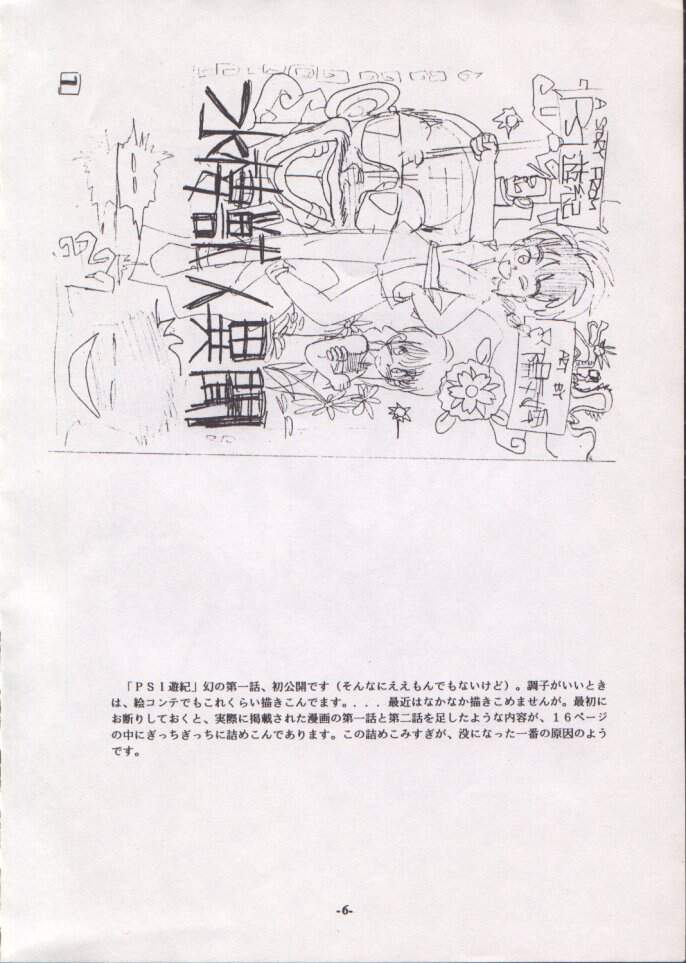 1
A STORY FROM
PSI遊紀
ART BY
水 人異聞
「ＰＳＩ遊紀」幻の第一話、初公開です（そんなにええもんでもないけど）。調子がいいとき
は、絵コンテでもこれくらい描きこんでます。．．．．最近はなかなか描きこめませんが。最初に
お断りしておくと、実際に掲載された漫画の第一話と第二話を足したような内容が、１６ページ
の中にぎっちぎっちに詰めこんであります。この詰めこみすぎが、没になった一番の原因のよう
です。
-6-